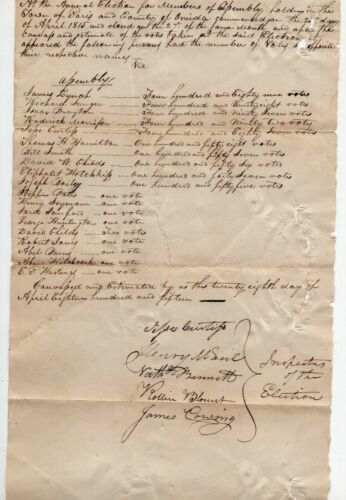 At the Annual Election for Members of Assembly, holden in the
Town of Paris and County of Oneida commenced on the 25th day
of April 1815 and closed on the 27th of the same Month and after the
Canvass and estimate of the votes taken at the said Election it
appeared the following persons had the number of Votes opposite
their respective names
Viz
Assembly
James Lynch — Four hundred and Eighty nine votes
Richard Sanger — Four hundred and Ninty Eight votes
Isaac Brayton — Four hundred and Ninty Seven votes
Roderick Morrison — Four hundred and Ninty two votes
Jesse Curtiss — Four hundred and Eighty Seven votes
Thomas H Hamilton — One hundred and fifty eight votes
Bill Smith — One hundred and fifty Seven votes
David W Childs — One hundred and fifty Six votes
Eliphalet Hotchkiss — One hundred and forty Seven votes
Joseph — One hundred and fifty five votes
Stephen — one vote
Henry Seymour — one vote
Jared — one vote
George Huntington — one vote
David Childs — Two votes
Robert Jones — one vote
Abel — one vote
Hitchcock one vote
E. P. Hastings — one vote
Canvassed and Estimated by us this twenty eighth day of
April Eighteen hundred and fifteen
Jesse Curtiss
Henry
Nathl Bennett
Rollin Blount
James Cowing
Inspectors
of the
Election